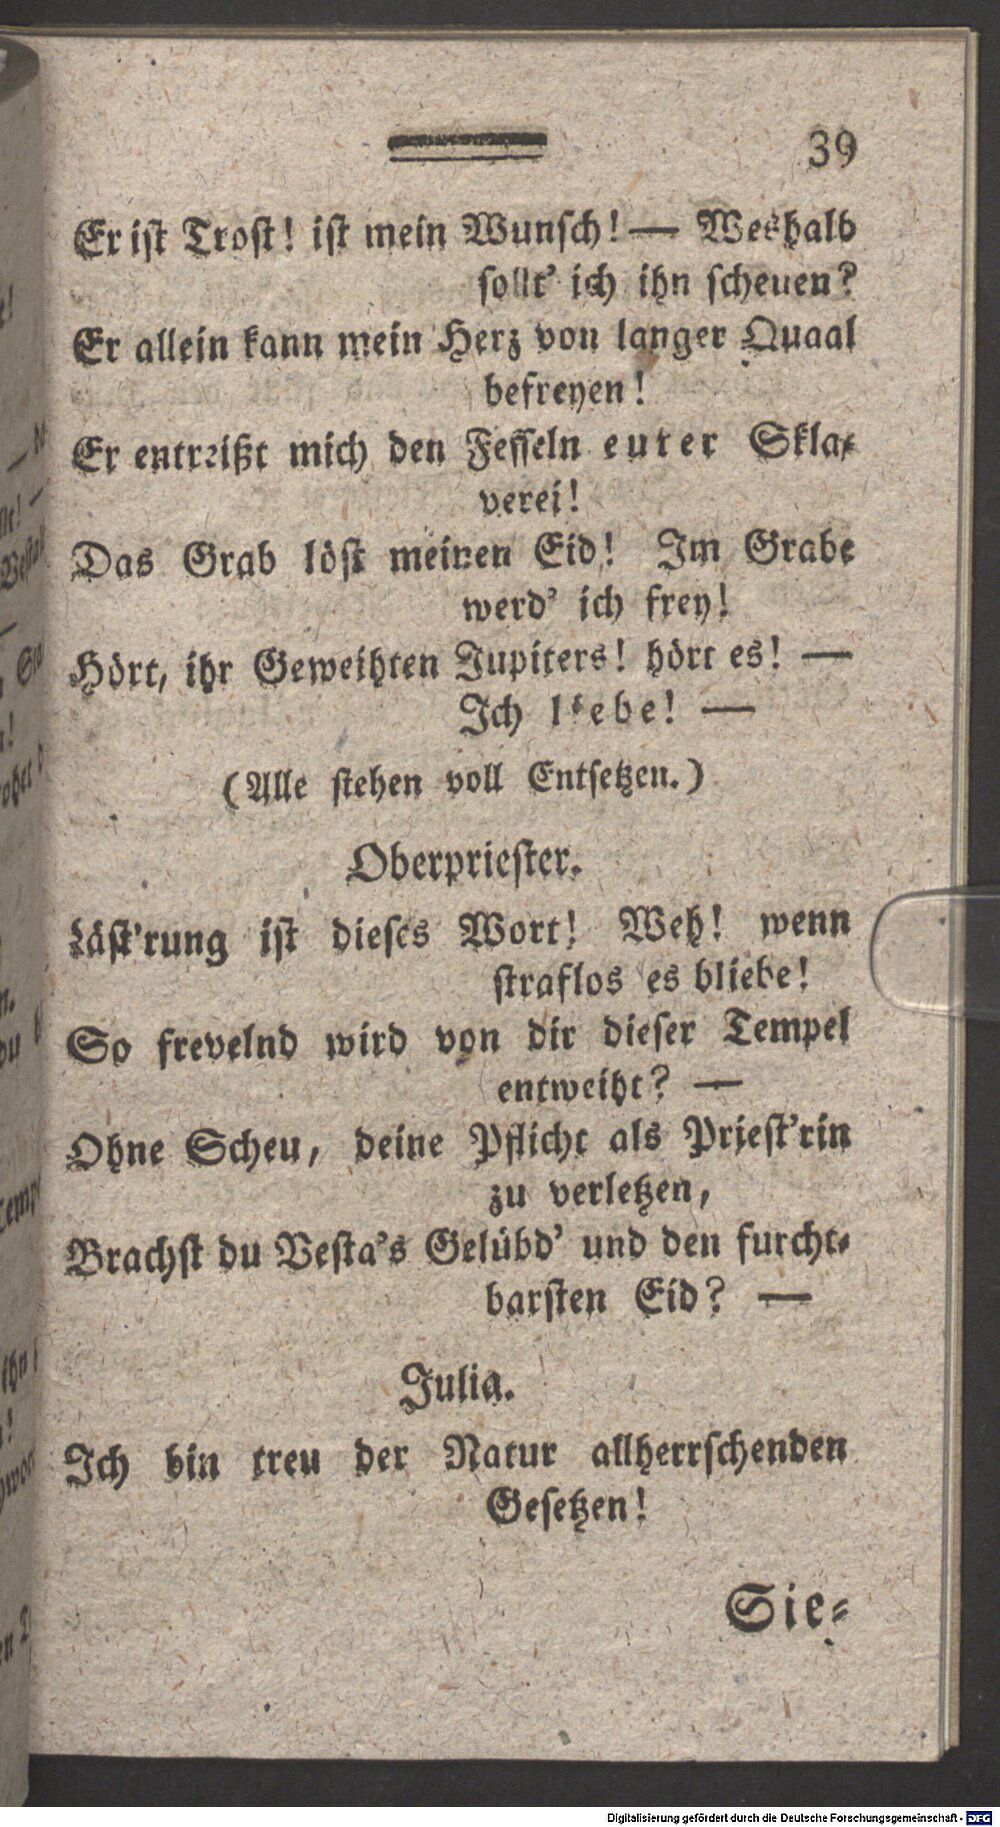 39
Er iſt Troſt! iſt mein Wunſch! — Weshalb
ſollt' ich ihn ſcheuen?
Er allein kann mein Herz von langer Quaal
befreyen!
Er entreißt mich den Feſſeln eurer Skla⸗
verei!
Das Grab löſt meinen Eid! Im Grabe
werd' ich frey!
Hört, ihr Geweihten Jupiters! hört es! —
Ich liebe! —
(Alle ſtehen voll Entſetzen.)
Oberprieſter.
Läſt'rung iſt dieſes Wort! Weh! wenn
ſtraflos es bliebe!
So frevelnd wird von dir dieſer Tempel
entweiht? —
Ohne Scheu, deine Pflicht als Prieſt'rin
zu verletzen,
Brachſt du Veſta's Gelübd' und den furcht⸗
barſten Eid? —
Julia.
Ich bin treu der Natur allherrſchenden
Geſetzen!
Sie⸗
Digitalisierung gefördert durch die Deutsche Forschungsgemeinschaft - DFG